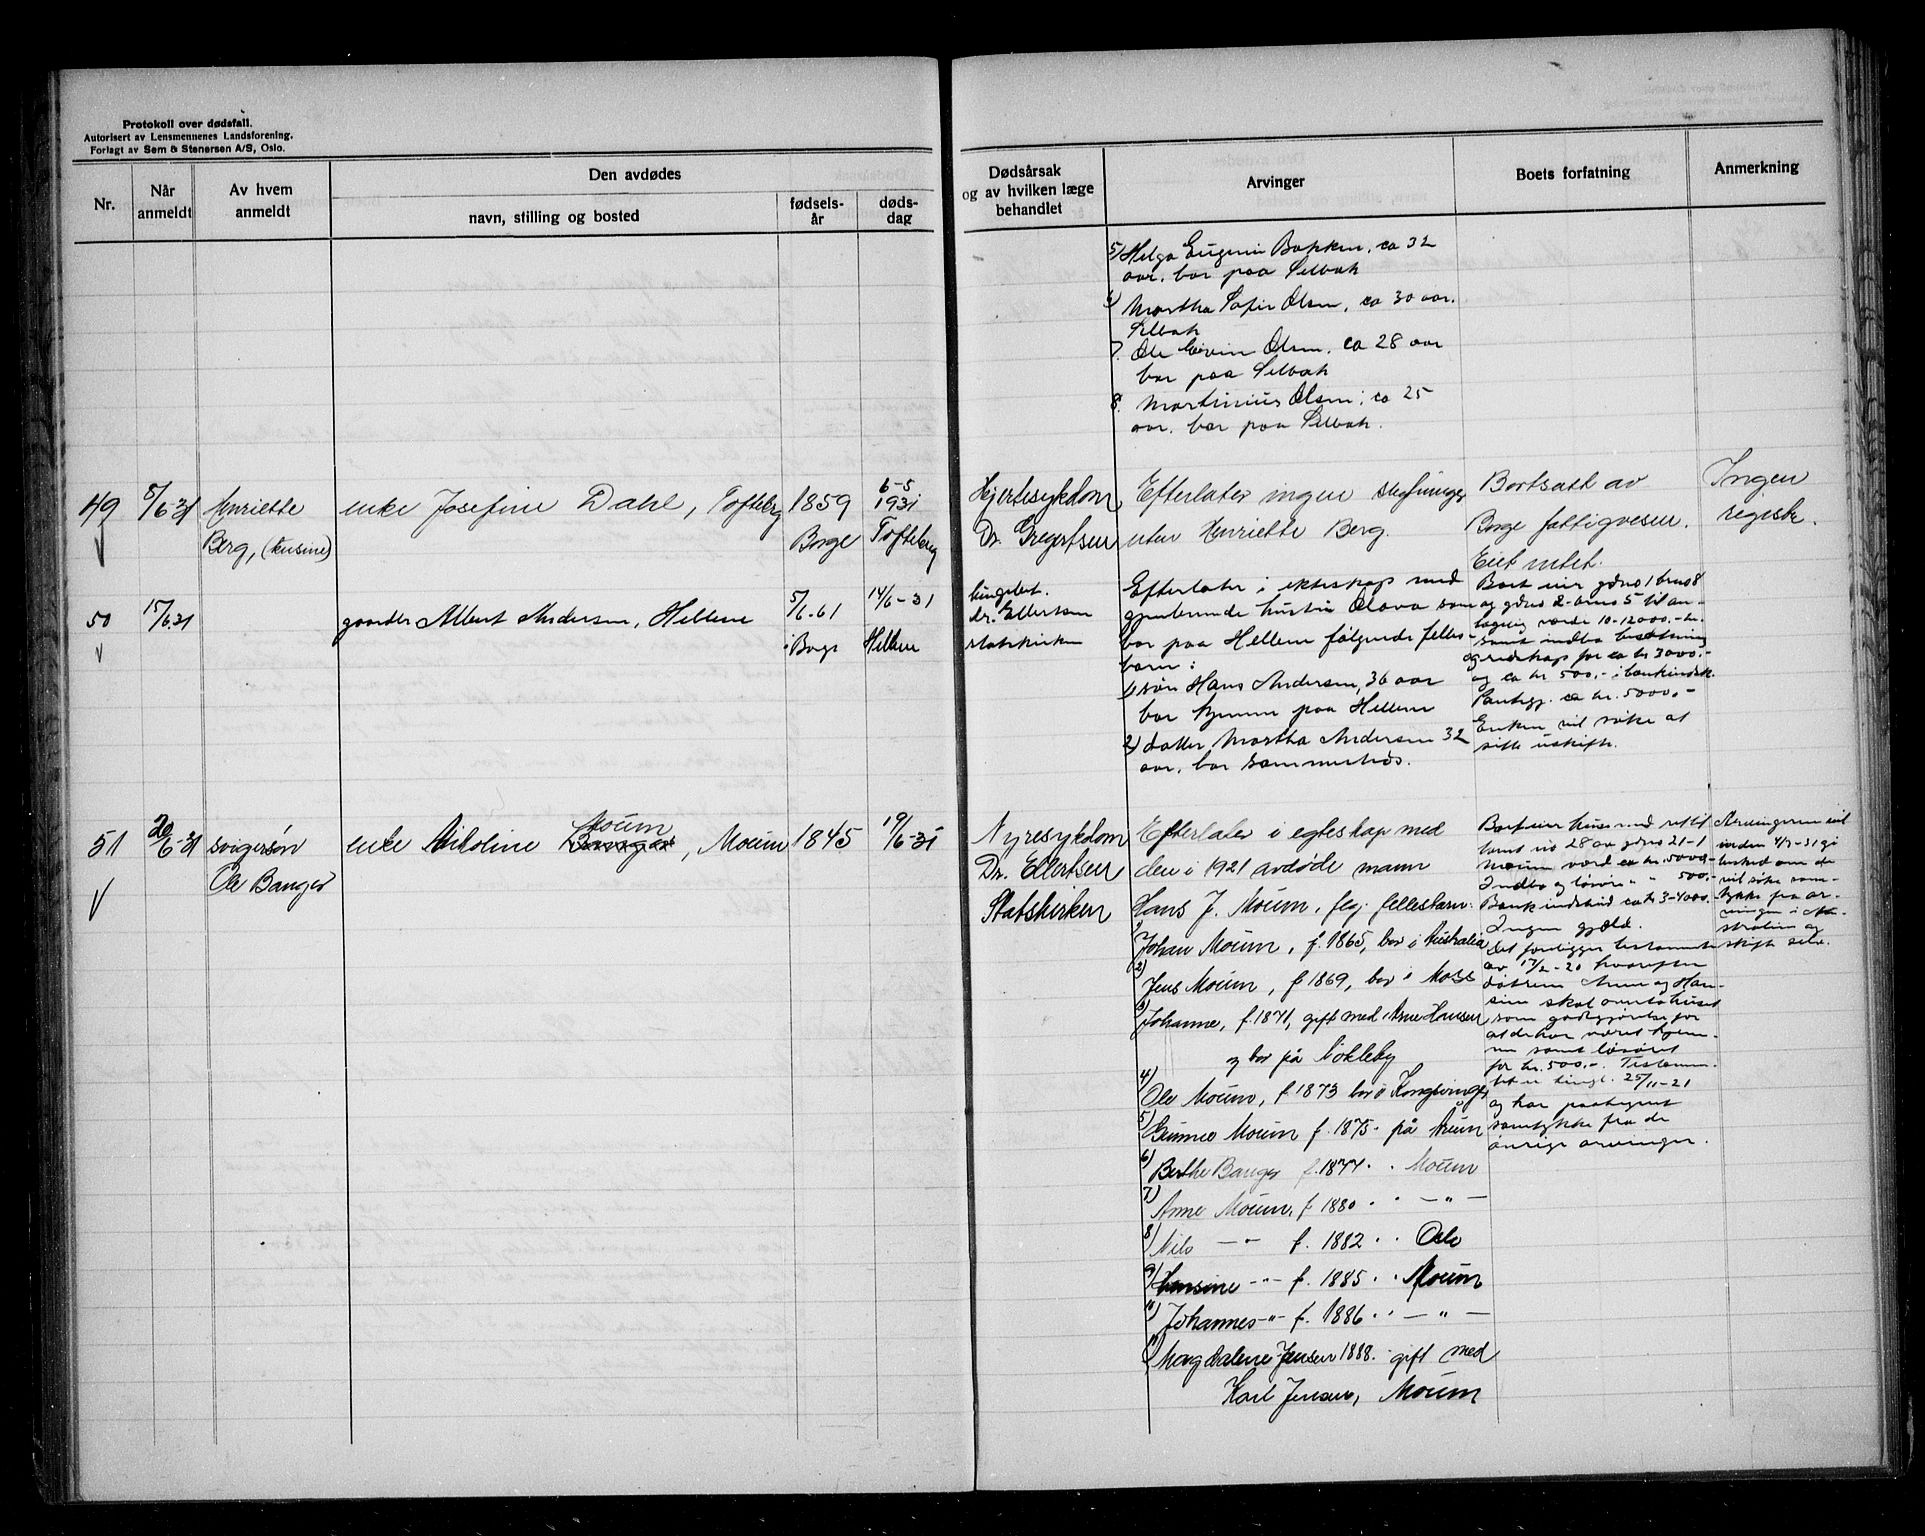 Protokoll over dødsfall.
Autorisert av Lensmennenes Landsforening.
Forlagt av Sem & Stenersen A/S, Oslo.
Nr.
Når
anmeldt
Av hvem
anmeldt
Den avdødes
navn, stilling og bosted
fødsels-
år
døds-
dag
Dødsårsak
og av hvilken læge
behandlet
Arvinger
Boets forfatning
Anmerkning
5) Helga Eugenie Bakken, ca 32
aar, bor paa Selbak
6) Martha Sofie Olsen, ca 30 aar.
Selbak
7. Ole Olsen, ca 28 aar
bor paa Selbak
8. Martinius Olsen, ca 25
aar, bor paa Selbak.
49
8/6-31
Henriette
Berg, (kusine)
enke Josefine Dahl, Tofteberg
1859
Borge
6-5
1931
Tofteberg
Hjertesykdom
Dr. Gregertsen
Efterlater ingen slegtninger
uten Henriette Berg.
Bortsatt av
Borge fattigvesen.
Eiet intet.
Ingen
registr.
50
15/6.31
gaardbr Albert Andersen, Hellem
5/1.61
i Borge
14/6-31
Hellem
lungebet.
dr. Ellertsen
statskirken
Efterlater i ekteskap med
gjenlevende hustru Olava som
bor paa Hellem følgende felles-
barn:
1) søn Hans Andersen, 36 aar
bor hjemme paa Hellem
2) datter Martha Andersen 32
aar, bor sammesteds.
Boet eier gdno 1 brno 8
og gdno 2 brno 5 til an-
tagelig værdi 10-12000.- kr.
samt indbo besætning
og redskap for ca kr 3000.-
og ca kr 500.- i bankindsk.
Pantegj. ca kr. 5000.-
Enken vil søke at
sitte i uskifte.
51
20/6-31
svigersøn
Ole Banger
enke Nikoline Banger, Moum
Moum
1845
19/6-31
Nyresykdom
Dr. Ellertsen
Statskirken
Efterlater i egteskap med
den i 1921 avdøde mann
Hans J. Moum, flg. fellesbarn:
1) Johan Moum, f. 1865, bor i Australia
2) Jens Moum, f 1869, bor i Moss
3) Johanne, f. 1871, gift med Arne Hansen
og bor på Nokleby
4) Ole Moum, f 1873 bor i Kongsvinger
5) Gunner Moum f. 1875 - på Årum
6) Berthe Banger f. 1877 " Moum
7) Anne Moum, f 1880 " — " —
8) Nils — " f. 1882 " Oslo
9) Hansine — " — f. 1885 " Moum
10) Johannes — " — f. 1886 " — " —
11) Magdalene Jensen 1888 - gift med
Karl Jensen, Moum
Boet eier hus med rett til
tomt nr 28 av gdno 21-1
Moum værd ca kr. 5000.-
Indbo og løsøre " " 500.-
Bankindskud ca kr 3-4000.-
Ingen gjæld.
Det foreligger testamente
av 17/2-20 hvorefter
døtrene Anne og Han-
sine skal overta huset
som godtgjørelse for
at de har været hjem-
me samt løsøret
for kr. 500.-. Testamen-
tet er tingl. 25/11-21
og har paategnet
samtykke fra de
øvrige arvinger.
Arvingerne vil
inden 4/7-31 gi
besked om de
vil søke sam-
tykke fra ar-
vingen i Au-
stralien og
skifte selv.